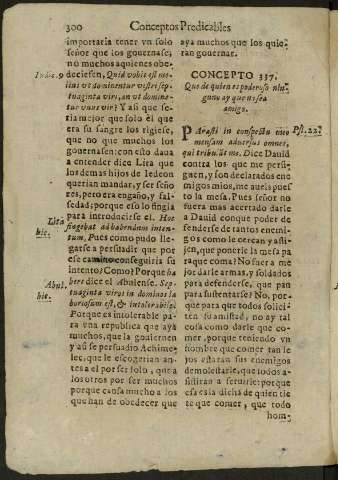 300 Conceptos Predicables
importaria tener vn solo
señor que los gouernase;
no muchos aquienes obe-
Iudic. 9 deciesen, Quid vobis est me-
lius vt dominentur vistri sep-
tuaginta viri, an vt domine-
tur vnus vir? Y asi que se-
ria mejor que solo el que
era su sangre los rigiese,
que no que muchos los
gouernasen: con esto daua
a entender dice Lira que
los demas hijos de Iedeon
querian mandar, y ser seño
res, pero era engaño, y fal-
sedad; porque eso lo fingia
para introducirse el. Hoc
Lira hic. fingebat ad habendum inten-
tum, Pues como pudo lle-
garse a persuadir que por
ese camino conseguiria su
intento? Como? Porque ha
Abul. hic. bere dice el Abulense. Sep-
tuaginta viros in dominos la
boriosum est, & intolerabile.
Porque es intolerable pa-
ra vna republica que aya
muchos, que la gouiernen
y aũ se persuadio Achime-
lec, que le escogerian an-
tes a el por ser solo, que a
los otros por ser muchos
porque cansa mucho a los
que han de obedecer que
aya muchos que los quie-
ran gouernar.
CONCEPTO 337.
Que de quien es poderoso nin-
guno ay que no sea
amigo.
PArasti in conspectu meo Psl. 22.
mensam aduersus omnes,
qui tribulãt me. Dice Dauid
contra los que me persi-
guen, y son declarados ene
migos mios, me aueis pues
to la mesa. Pues señor no
fuera mas acertado darle
a Dauid conque poder de
fenderse de tantos enemi-
gos como le cercan y assi-
jen, que ponerle la mesa pa
raque coma? No fuera me
jor darle armas, y soldados
para defenderse, que pan
para sustentarse? No, por-
que para que todos solici-
ten su amistad, no ay tal
cosa como darle que co-
mer, porque teniendo vn
hombre que comer tan le
jos estarán sus enemigos
demolestarle, que todos a-
sistiran a seruirle: porque
esa es la dicha de quien tie
ne que comer, que todo
hom-